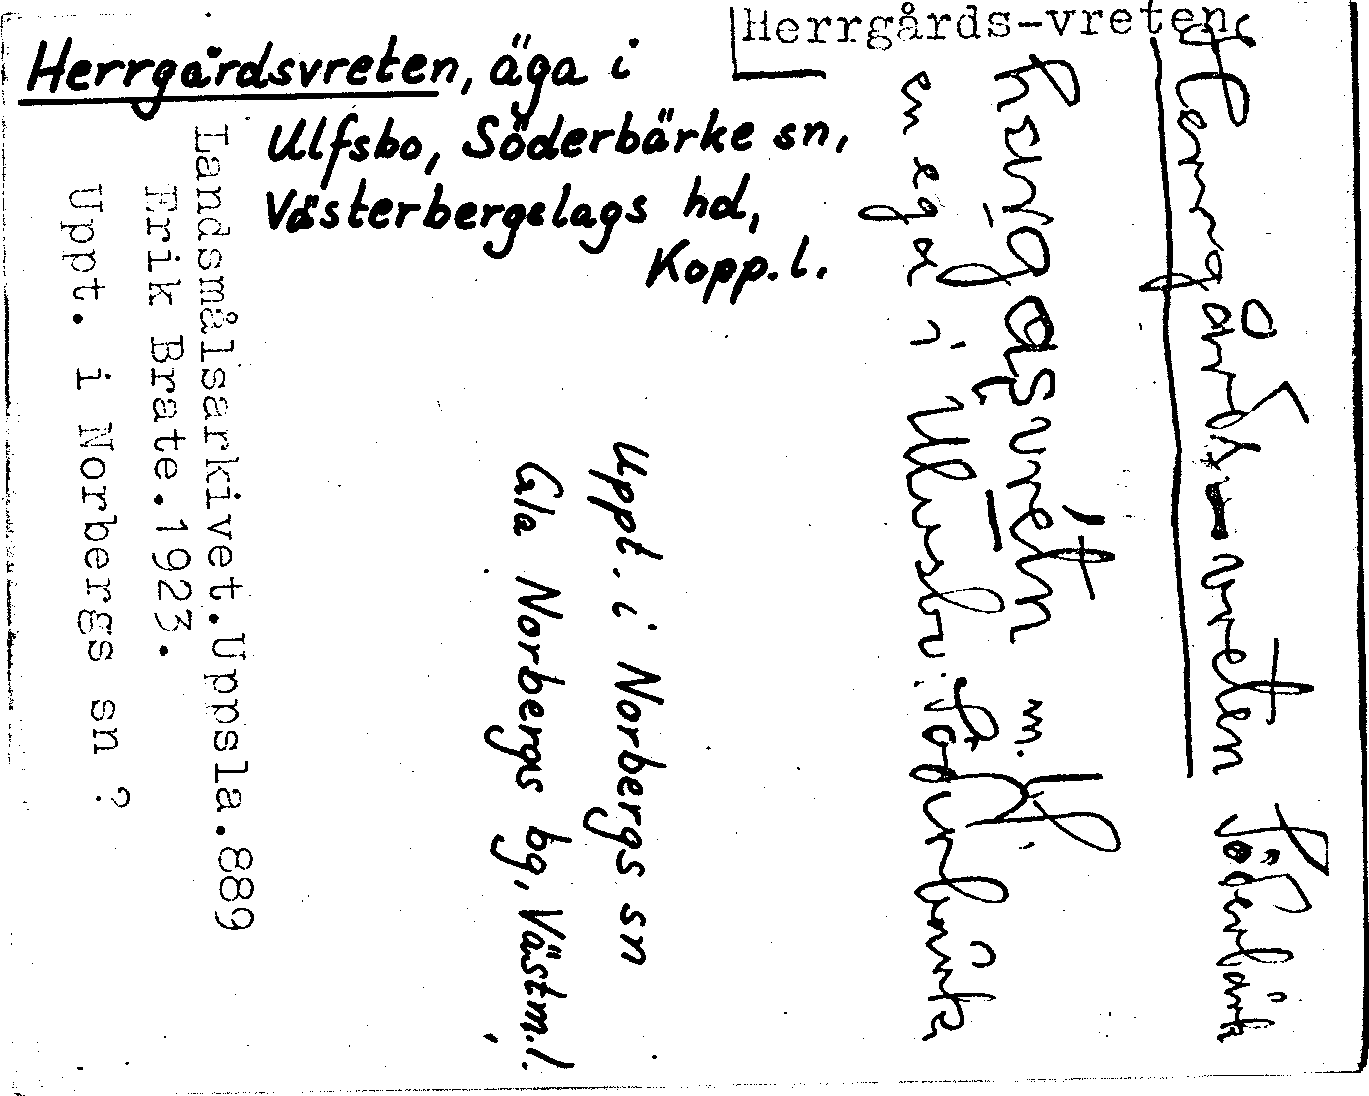 Herrgårds-vreten
Herrgårdsvreten, äga i
Ulfsbo, Söderbärke sn,
Västerbergslags hd,
Kopp. l.
Herrgårds-vreten Söderbärke
m.
en ega i Ulvsbo Söderbärke
Uppt. i Norbergs sn
Gla Norbergs bg, Västm. l.
Landsmålsarkivet.Uppsla.889
Erik Brate.1923.
Uppt. i Norbergs sn ?